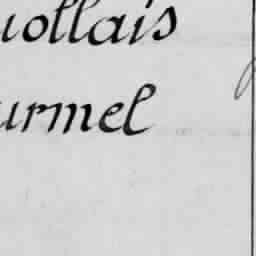 uollais
urmel